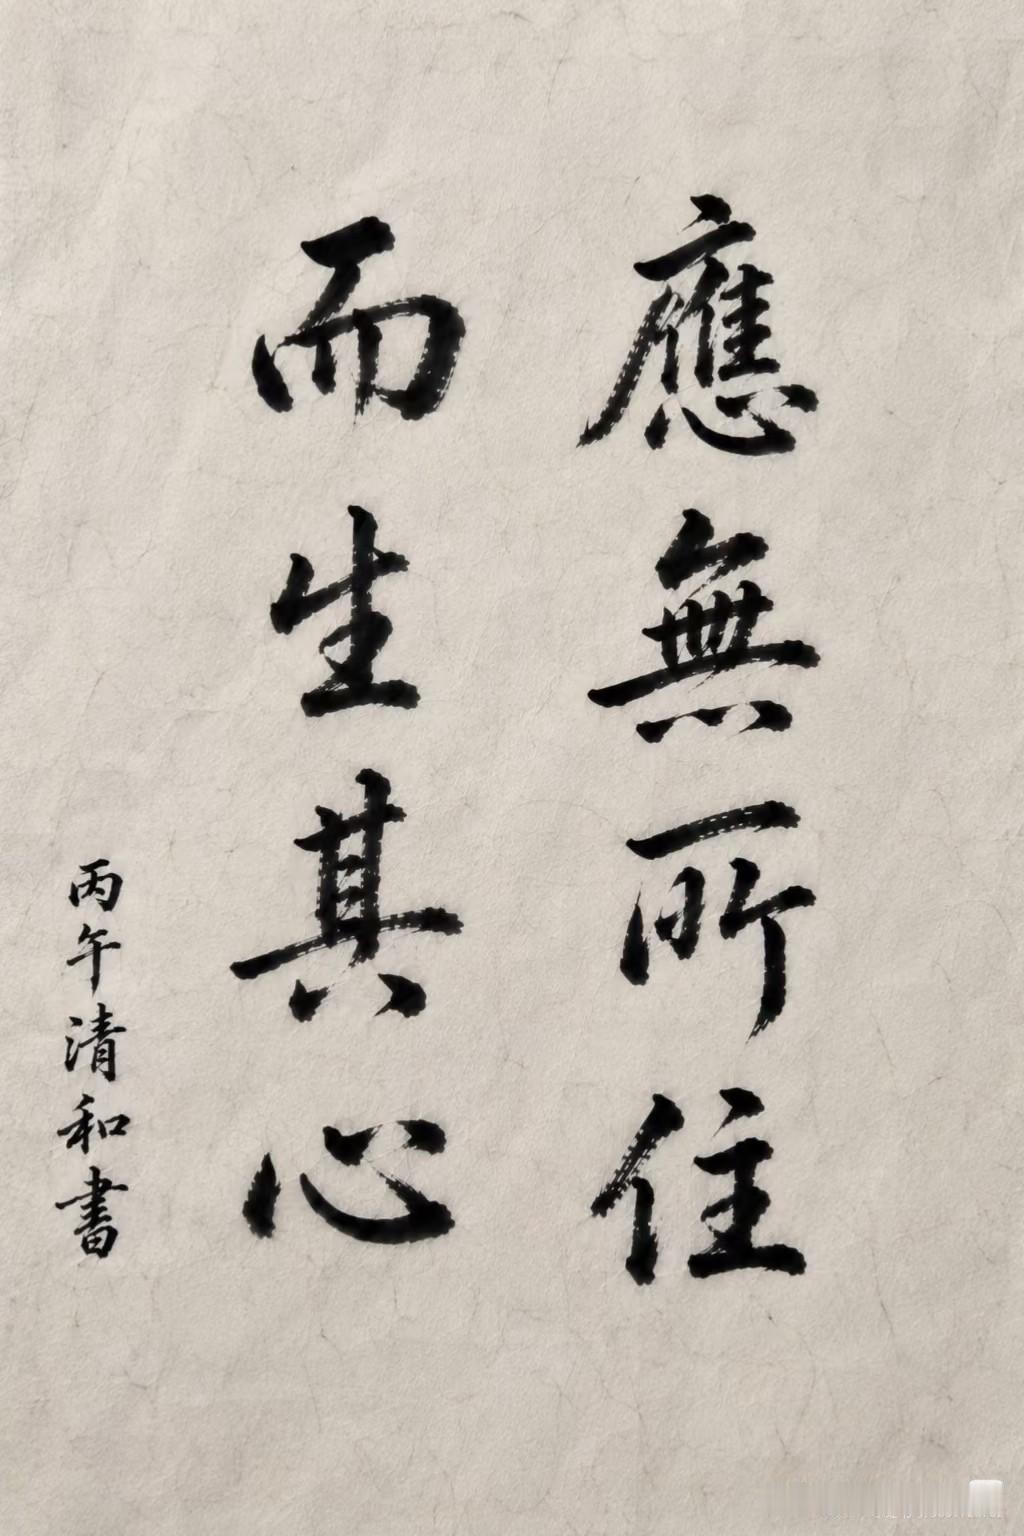 應無所住
而生其心
丙午清和書